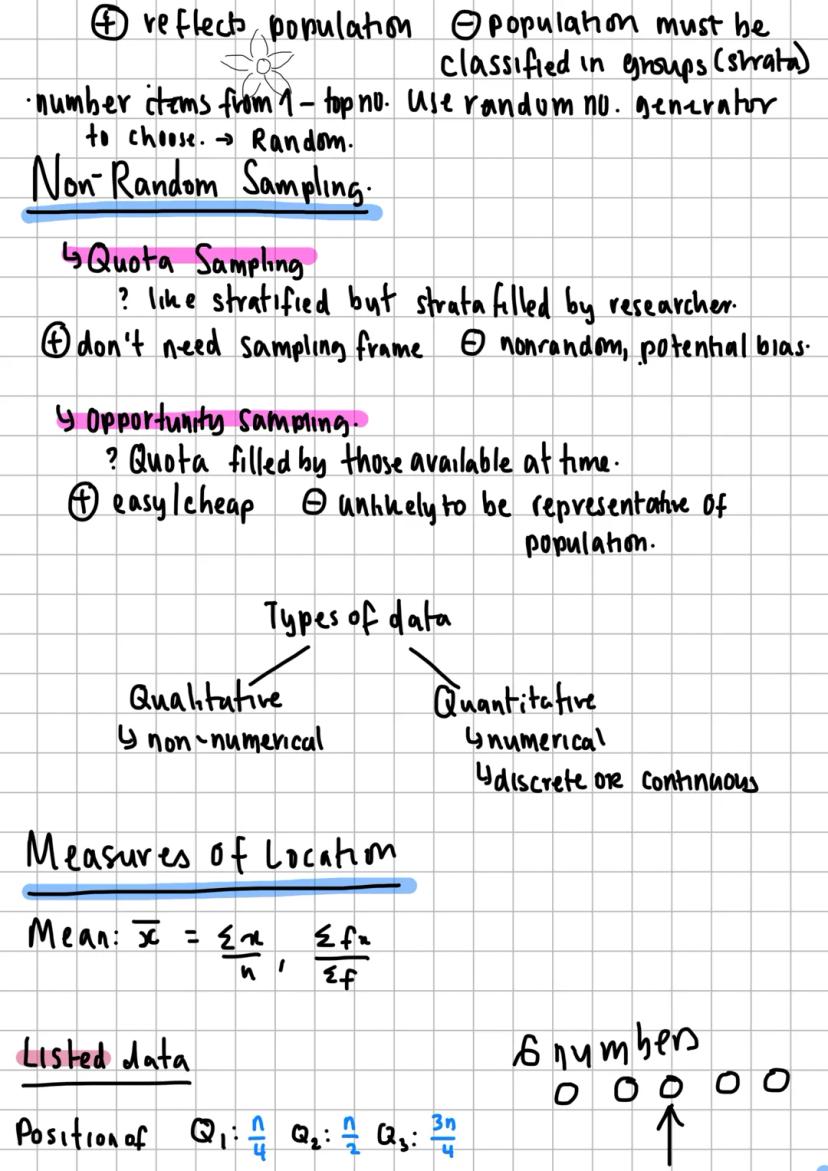 ⊕ reflects population ⊖ population must be
classified in groups (strata)
· number items from 1 - top no. Use random no. generator
to choose. → Random.
Non-Random Sampling.
↳ Quota Sampling
? like stratified but strata filled by researcher.
⊕ don't need sampling frame ⊖ nonrandom, potential bias.
↳ Opportunity sampling.
? Quota filled by those available at time.
⊕ easy/cheap ⊖ unlikely to be representative of
population.
Types of data
Qualitative Quantitative
↳ non-numerical ↳ numerical
↳ discrete or continuous
Measures of Location
Mean: x̅ = Σx/n, Σfx/Σf
Listed data
numbers
Position of Q₁: n/4 Q₂: n/2 Q₃: 3n/4